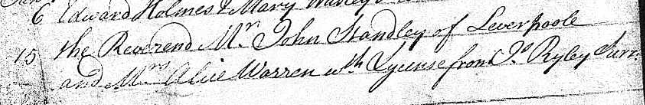 6 Edward Holmes & Mary
15 the Reverend Mr. John Standley of Leverpoole
and Mrs Alice Warren wth Lycense from Jo Ryley Surr.